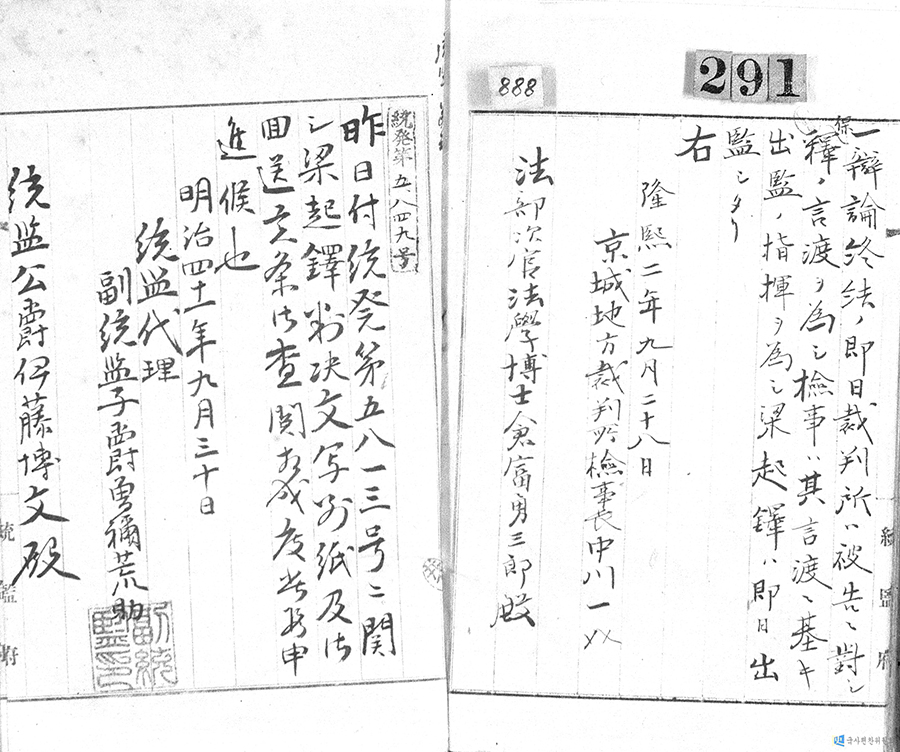 291
888
一辯論終結ノ即日裁判所ハ被告ニ對シ
保釋ノ言渡ヲ為シ檢事ハ其言渡ニ基キ
出監ノ指揮ヲ為シ梁起鐸ハ即日出
監シタリ
右
隆熙二年九月二十八日
京城地方裁判所檢事長中川一介
法部次官法學博士倉富勇三郎殿
統發第五、八四九号
昨日付統発第五八一三号ニ関
シ梁起鐸判决文写別紙及御
回送候条御查閱相成度此段申
進候也
明治四十一年九月三十日
統監代理
副統監子爵曾禰荒助
副統監印
統監公爵伊藤博文殿
統監府
統監府
국사편찬위원회